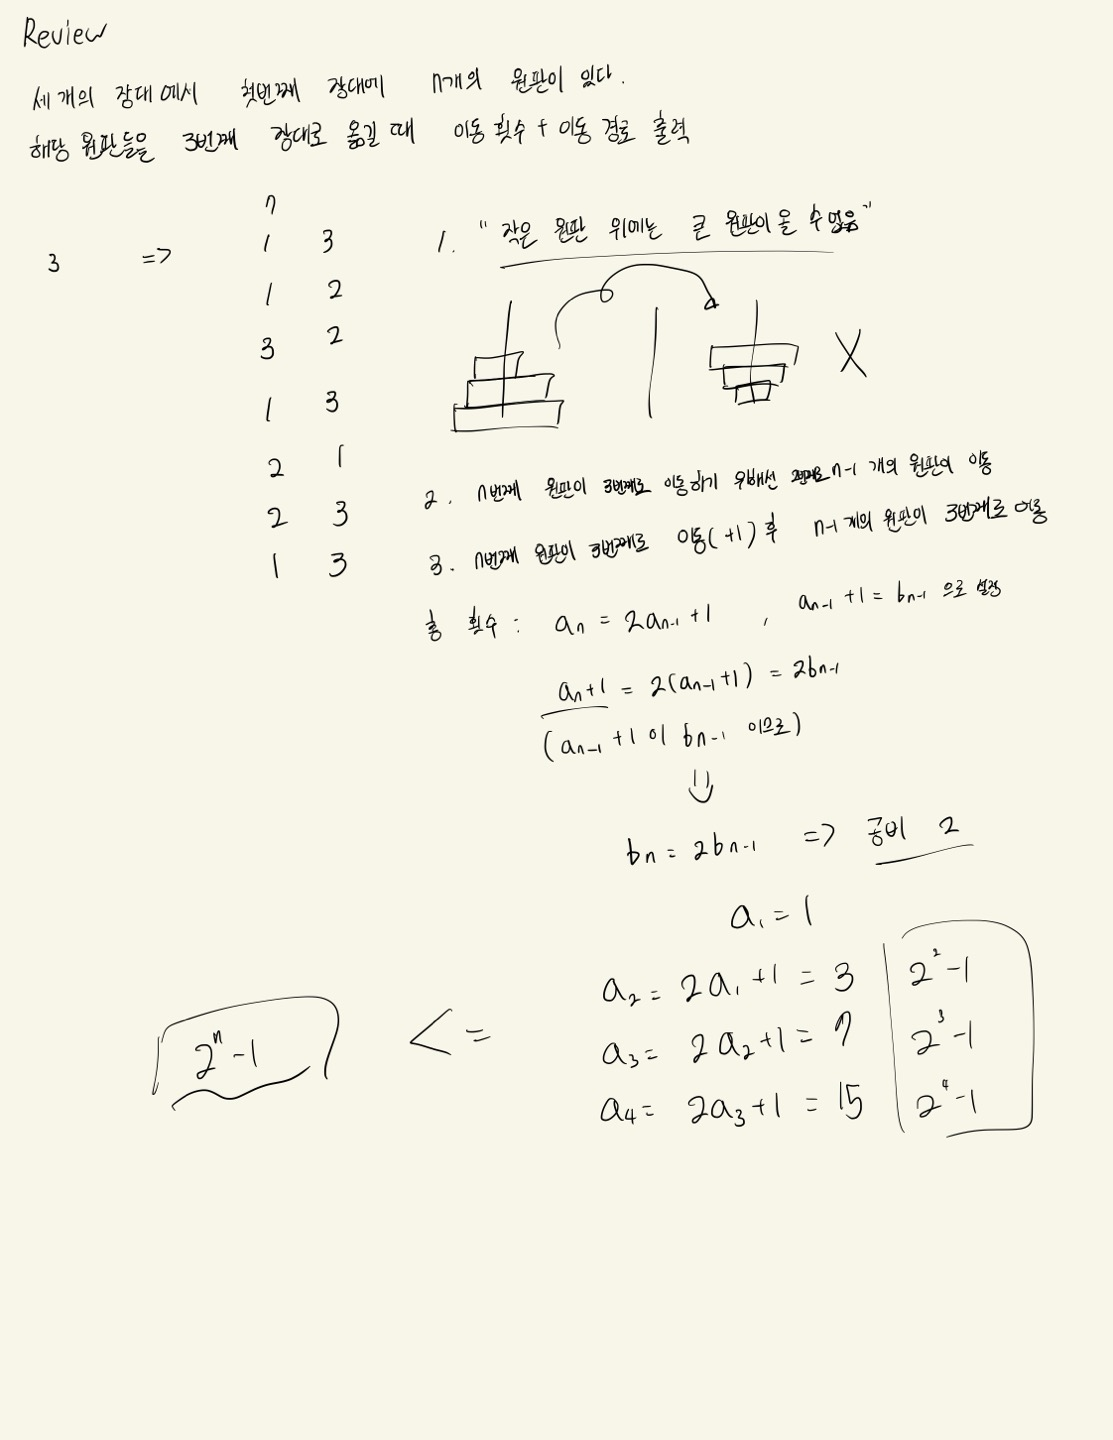 Review
세 개의 장대에서 첫번째 장대에 n개의 원판이 있다.
해당 원판들을 3번째 장대로 옮길 때 이동 횟수 + 이동 경로 출력
3 => 7
1 3
1 2
3 2
1 3
2 1
2 3
1 3
1. "작은 원판 위에는 큰 원판이 올 수 없음"
X
2. n번째 원판이 3번째로 이동하기 위해선 2번째로 n-1 개의 원판이 이동
3. n번째 원판이 3번째로 이동(+1) 후 n-1개의 원판이 3번째로 이동
총 횟수 : aₙ = 2aₙ₋₁ + 1 , aₙ₋₁ + 1 = bₙ₋₁ 으로 설정
aₙ+1 = 2(aₙ₋₁+1) = 2bₙ₋₁
(aₙ₋₁ + 1 이 bₙ₋₁ 이므로)
bₙ = 2bₙ₋₁ => 공비 2
a₁ = 1
a₂ = 2a₁ + 1 = 3 2²-1
a₃ = 2a₂ + 1 = 7 2³-1
a₄ = 2a₃ + 1 = 15 2⁴-1
2ⁿ-1 <=